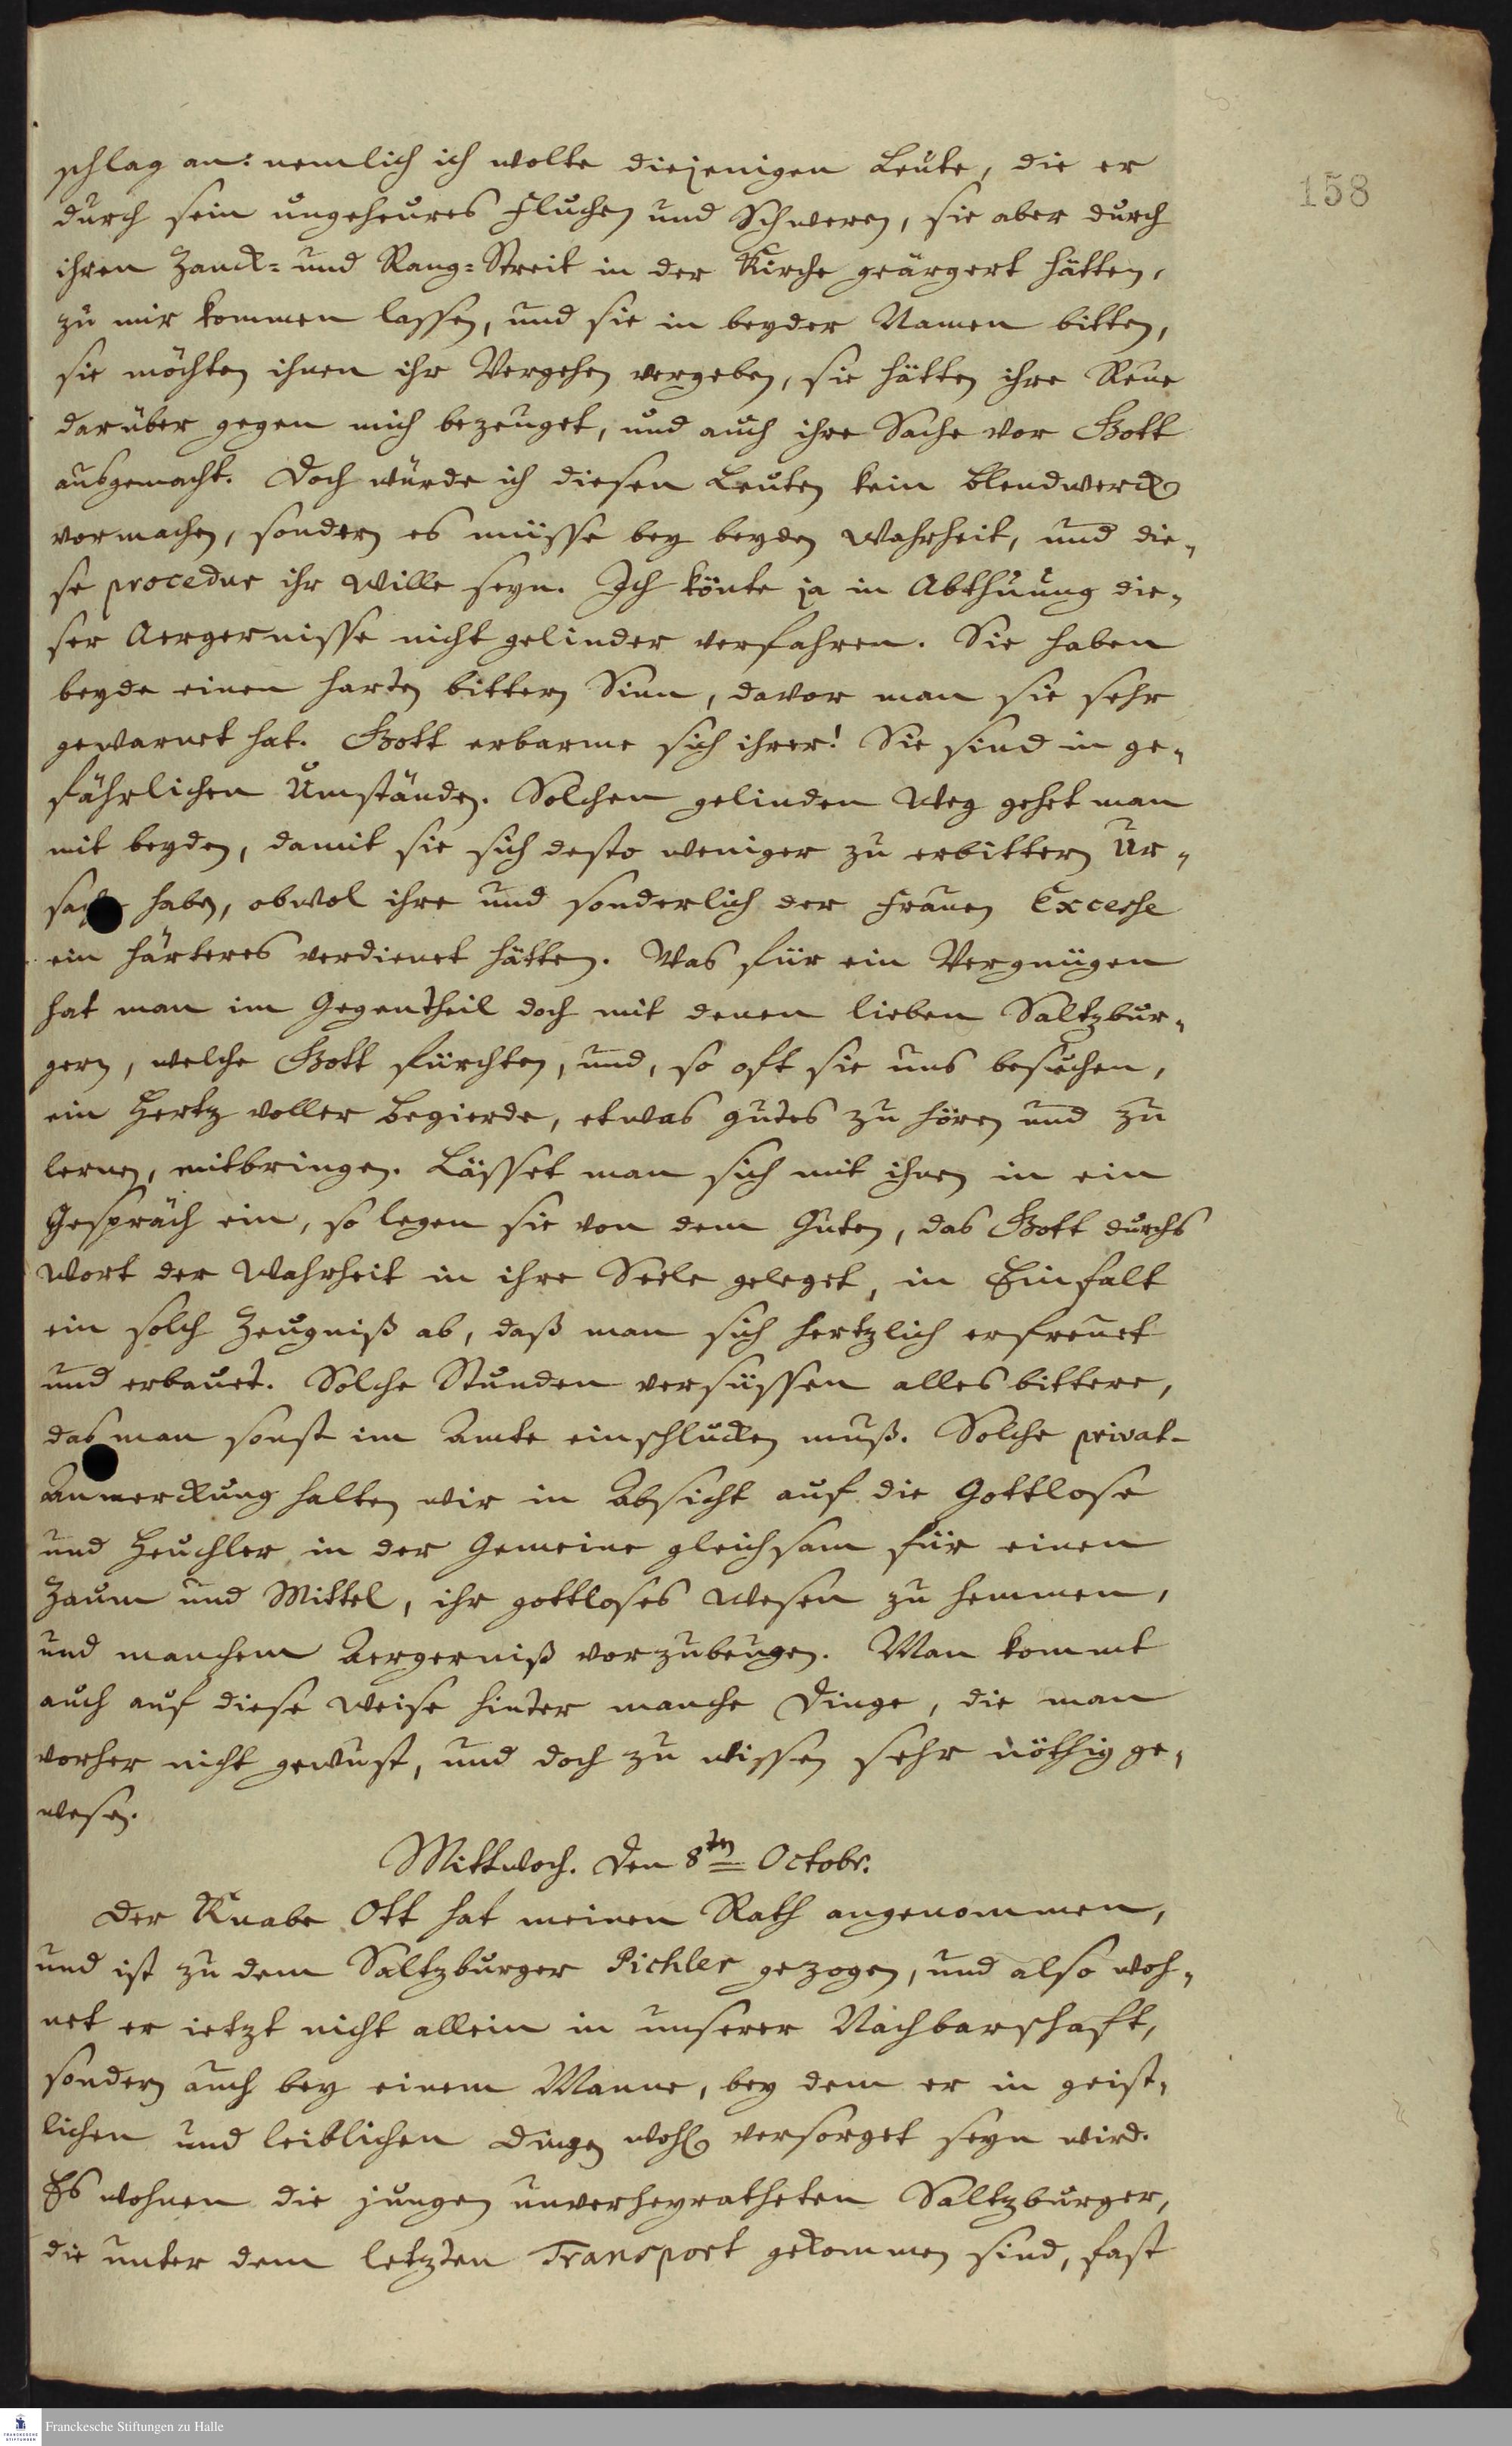 158
schlag an: nemlich ich wolte diejenigen Leute, die er
durch sein ungeheures Fluchen und Schweren, sie aber durch
ihren Zanck- und Rang-Streit in der Kirche geärgert hätten,
zu mir kommen lassen, und sie in beyder Namen bitten,
sie möchten ihnen ihr Vergehen vergeben, sie hätten ihre Reue
darüber gegen mich bezeuget, und auch ihre Sache vor Gott
ausgemacht. Doch würde ich diesen Leuten kein Blendwerck
vormachen, sondern es müsse bey beyden Wahrheit, und die-
se procedur ihr Wille seyn. Ich könte ja in Abthuung die-
ser Aergernisse nicht gelinder verfahren. Sie haben
beyde einen harten bittern Sinn, davor man sie sehr
gewarnet hat. Gott erbarme sich ihrer! Sie sind in ge-
fährlichen Umständen. Solchen gelinden Weg gehet man
mit beyden, damit sie sich desto weniger zu erbittern Ur-
sache haben, obwol ihre und sonderlich der Frauen Excesse
ein härteres verdienet hätten. Was für ein Vergnügen
hat man im Gegentheil doch mit denen lieben Saltzbur-
gern, welche Gott fürchten, und, so oft sie uns besuchen,
ein Hertz voller Begierde, etwas gutes zu hören und zu
lernen, mitbringen. Lässet man sich mit ihnen in ein
Gespräch ein, so legen sie von dem Guten, das Gott durchs
Wort der Wahrheit in ihre Seele geleget, in Einfalt
ein solch Zeugniß ab, daß man sich hertzlich erfreuet
und erbauet. Solche Stunden versüssen alles bittere,
das man sonst im Amte einschlucken muß. Solche privat-
Anmerckung halten wir in Absicht auf die Gottlose
und Heuchler in der Gemeine gleichsam für einen
Zaum und Mittel, ihr gottloses Wesen zu hemmen,
und manchem Aergerniß vorzubeugen. Man kommt
auch auf diese Weise hinter manche Dinge, die man
vorher nicht gewust, und doch zu wissen sehr nöthig ge-
wesen.
Mittwoch. den 8ten Octobr.
Der Knabe Ott hat meinen Rath angenommen,
und ist zu dem Saltzburger Pichler gezogen, und also woh-
net er ietzt nicht allein in unserer Nachbarschaft,
sondern auch bey einem Manne, bey dem er in geist-
lichen und leiblichen Dingen wohl versorget seyn wird.
Es wohnen die jungen unverheyratheten Saltzburger,
die unter dem letzten Transport gekommen sind, fast
Franckesche Stiftungen zu Halle